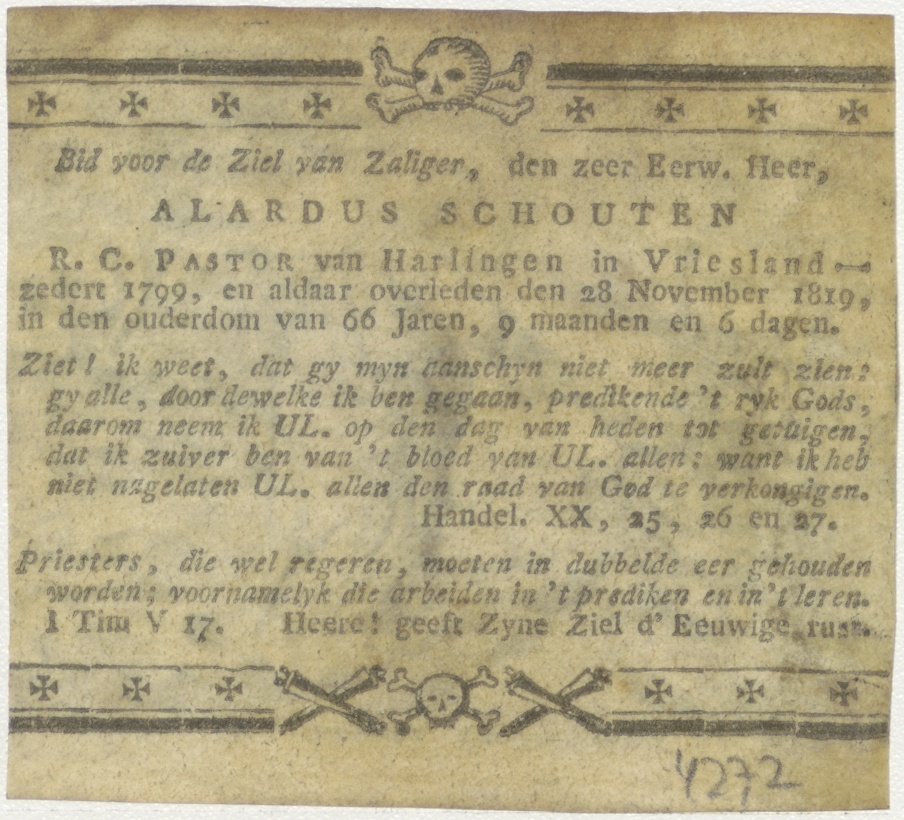 Bid voor de Ziel van Zaliger, den zeer Eerw. Heer,
ALARDUS SCHOUTEN
R. C. PASTOR van Harlingen in Vriesland
zedert 1799, en aldaar overleden den 28 November 1819,
in den ouderdom van 66 Jaren, 9 maanden en 6 dagen.
Ziet! ik weet, dat gy myn aanschyn niet meer zult zien:
gy alle, door dewelke ik ben gegaan, predikende 't ryk Gods,
daarom neem ik UL. op den dag van heden tot getuigen,
dat ik zuiver ben van 't bloed van UL. allen: want ik heb
niet nagelaten UL. allen den raad van God te verkongigen.
Handel. XX, 25, 26 en 27.
Priesters, die wel regeren, moeten in dubbelde eer gehouden
worden; voornamelyk die arbeiden in 't prediken en in 't leren.
I Tim V 17. Heere! geeft Zyne Ziel d'Eeuwige rust.
4272